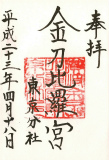 奉拝
金刀比羅宮
東京分社
平成二十三年四月廿八日